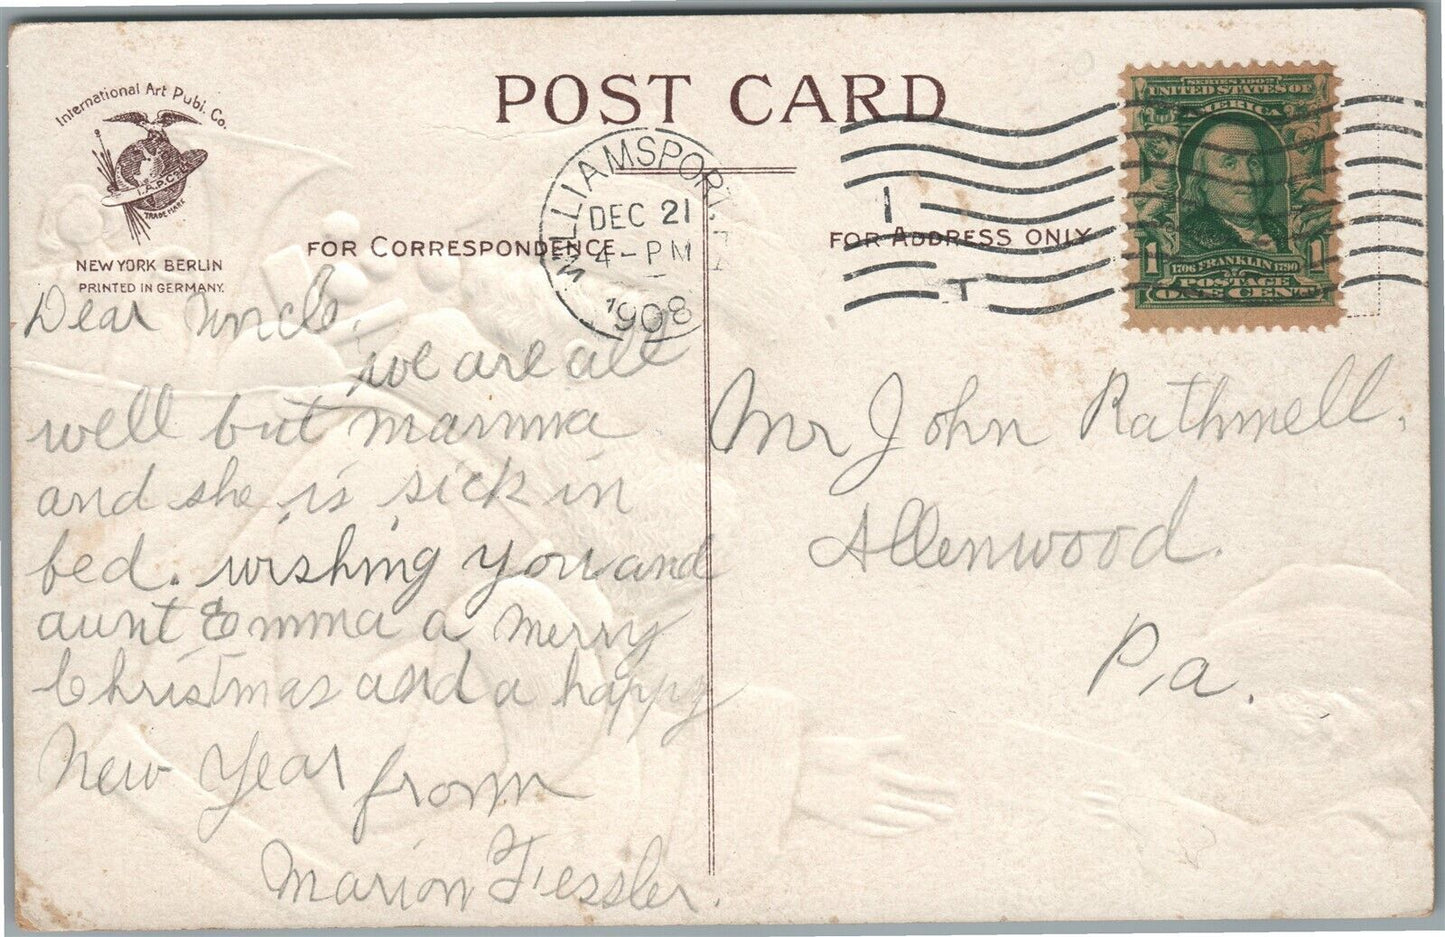 International Art Publ. Co.
I.A.P.C.
TRADE MARK
NEW YORK BERLIN
PRINTED IN GERMANY.
POST CARD
FOR CORRESPONDENCE
FOR ADDRESS ONLY
WILLIAMSPORT,
DEC 21
4-PM
1908
1
SERIES 1902
UNITED STATES OF
AMERICA
1706 FRANKLIN 1790
1
POSTAGE
ONE CENT
Dear Uncle,
we are all
well but mamma
and she is sick in
bed. wishing you and
aunt Emma a merry
Christmas and a happy
New Year from
Marion Fessler.
Mr John Rathmell.
Allenwood.
Pa.